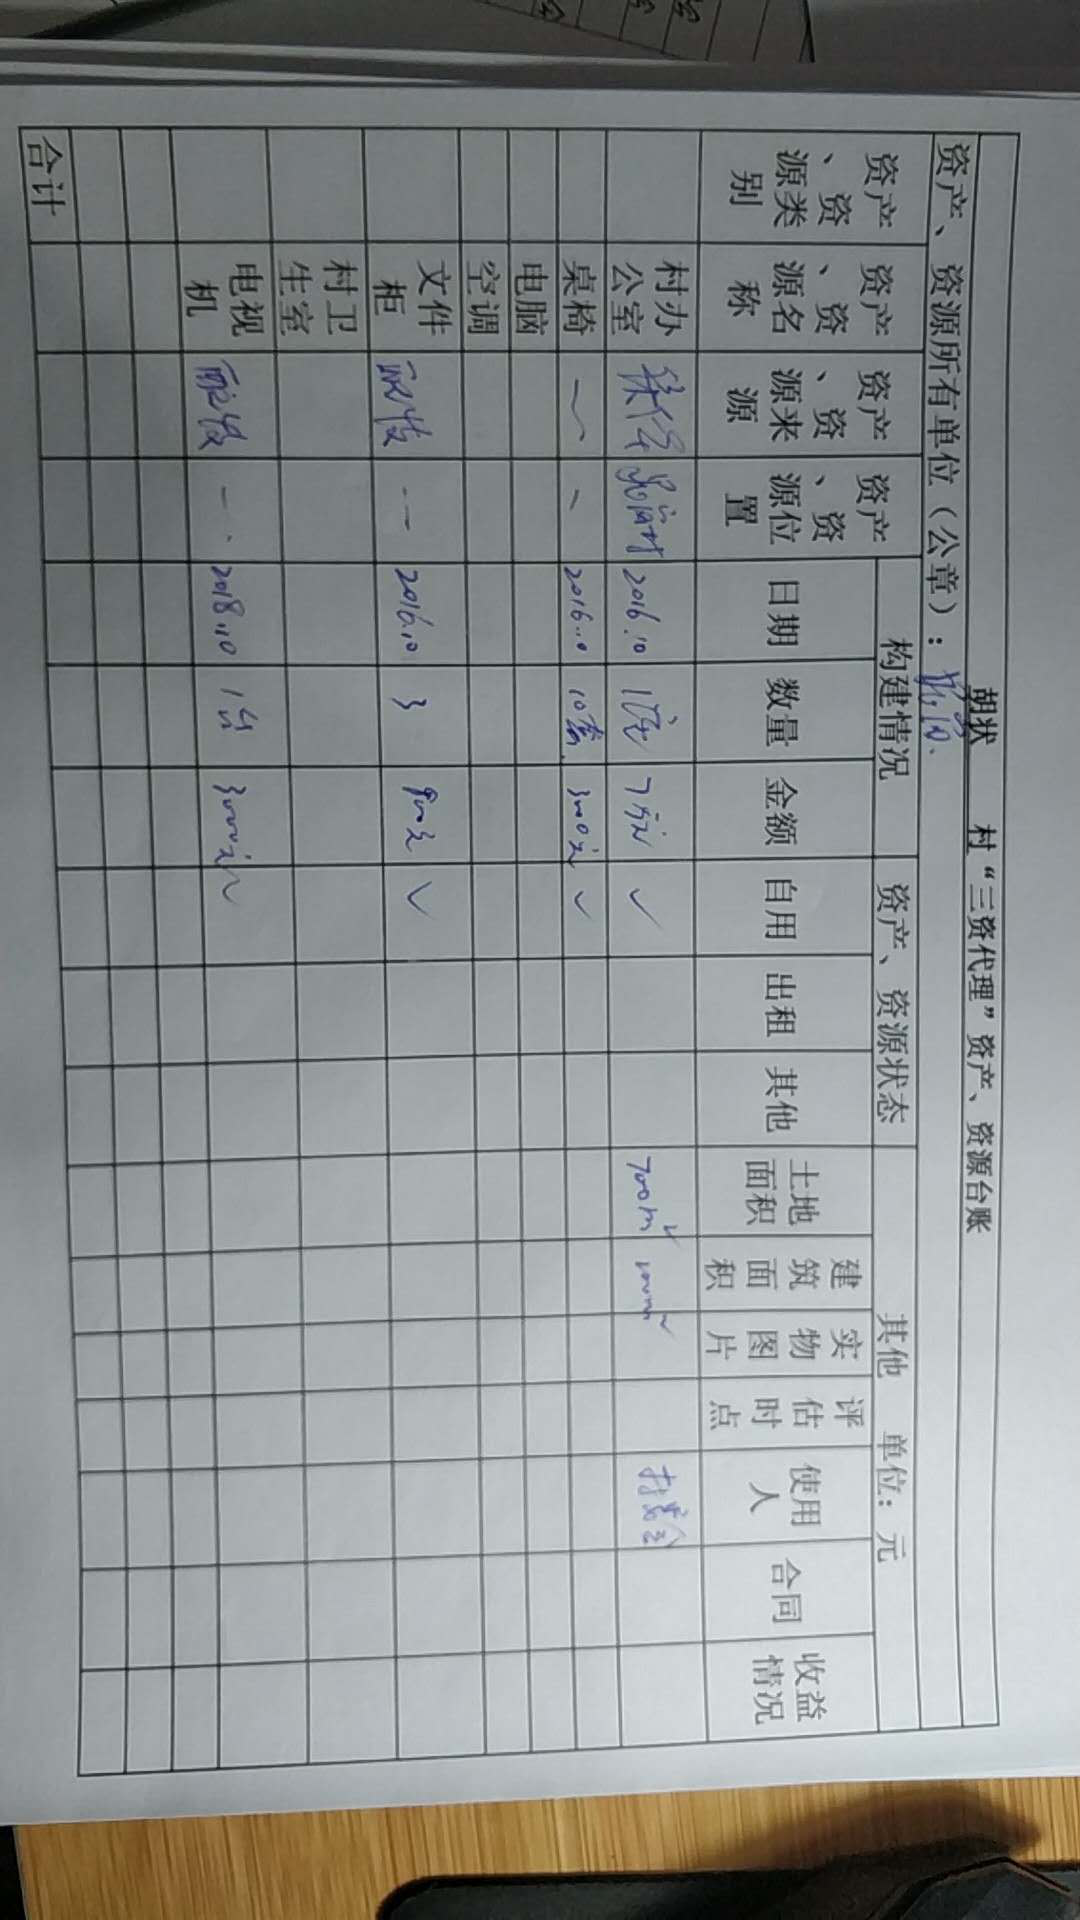 胡状 村“三资代理”资产、资源台账
资产、资源所有单位（公章）： 单位：元
资产、资源类别 资产、资源名称 资产、资源来源 资产、资源位置 构建情况 资产、资源状态 其他
日期 数量 金额 自用 出租 其他 土地面积 建筑面积 实物图片 评估时点 使用人 合同 收益情况
村办公室 2016.10 7万元 ✓ 700m² 村委会
桌椅 2016.10 10套 300元 ✓
电脑
空调
文件柜 配发 2016.10 3 900元 ✓
村卫生室
电视机 配发 2018.10 1台 3000元 ✓
合计